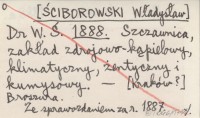 [ŚCIBOROWSKI Władysław]
Dr W. Ś. 1888. Szczawnica,
zakład zdrojowo-kąpielowy,
klimatyczny, żentyczny i
kumysowy. — [Kraków?]
Broszura.
Ze sprawozdaniem za r. 1887.